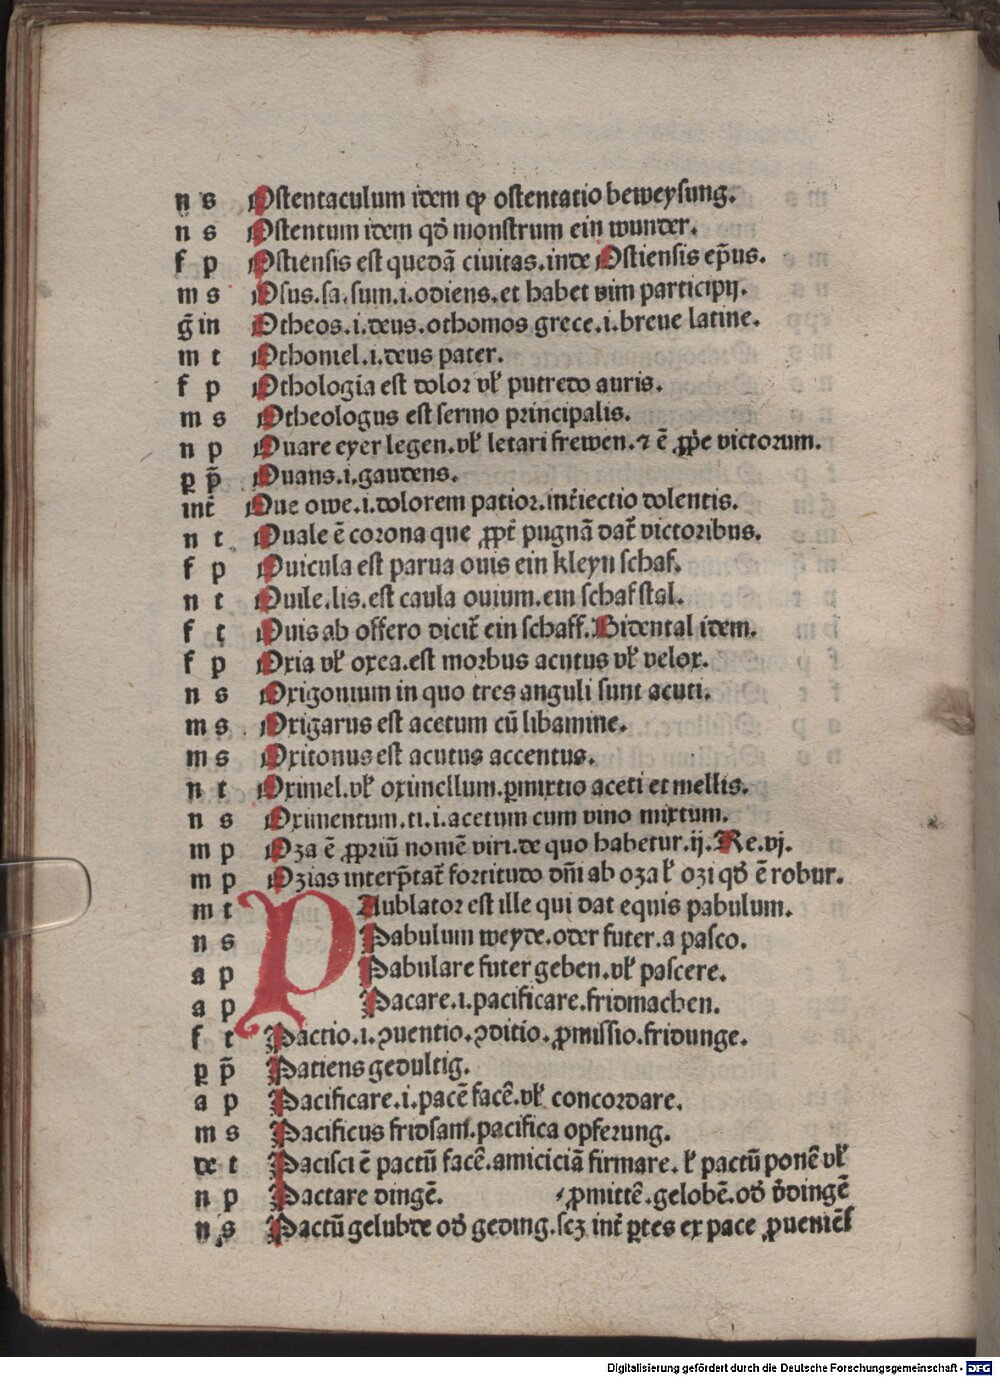 n s Ostentaculum idem qꝫ ostentatio beweysung.
n s Ostentum idem qđ monstrum ein wunder.
f p Ostiensis est quedā ciuitas.inde Ostiensis ep̄us.
m s Osus.sa.sum.i.odiens.et habet vim participij.
g̃ in Otheos.i.deus.othomos grece.i.breue latine.
m t Othoniel.i.deus pater.
f p Othologia est dolor vł putredo auris.
m s Otheologus est sermo principalis.
n p Ouare eyer legen.vł letari frewen.⁊ ē ꝓpe victorum.
p p̄ Ouans.i.gaudens.
int̃ Oue owe.i.dolorem patior.int̃iectio dolentis.
n t Ouale ē corona que ꝓpt̃ pugnā dat̃ victoribus.
f p Ouicula est parua ouis ein kleyn schaf.
n t Ouile.lis.est caula ouium.ein schaf stal.
f t Ouis ab offero dicit̃ ein schaff.Bidental idem.
f p Oxia vł oxea.est morbus acutus vł velox.
n s Oxigonium in quo tres anguli sunt acuti.
m s Oxigarus est acetum cū libamine.
m s Oxitonus est acutus accentus.
n t Oximel.vł oximellum.ꝑmixtio aceti et mellis.
n s Oximentum.ti.i.acetum cum vino mixtum.
m p Oza ē ꝓpriū nomē viri.de quo habetur.ij.Re.vj.
m p Ozias interp̄tat̃ fortitudo dn̄i ab oza ł ozi qđ ē robur.
m t PAublator est ille qui dat equis pabulum.
n s Pabulum weyde.oder futer.a pasco.
a p Pabulare futer geben.vł pascere.
a p Pacare.i.pacificare.fridmachen.
f t Pactio.i.ꝯuentio.ꝯditio.ꝓmissio.fridunge.
p p̄ Patiens gedultig.
a p Pacificare.i.pacē facē.vł concordare.
m s Pacificus fridsam.pacifica opferung.
de t Pacisci ē pactū facē.amiciciā firmare.ł pactū ponē vł
n p Pactare dingē. ꝓmittē.gelobē.od̄ v̄dingē
n s Pactū gelubde od̄ geding.scꝫ int̃ ꝑtes ex pace ꝓueniēs
Digitalisierung gefördert durch die Deutsche Forschungsgemeinschaft - DFG